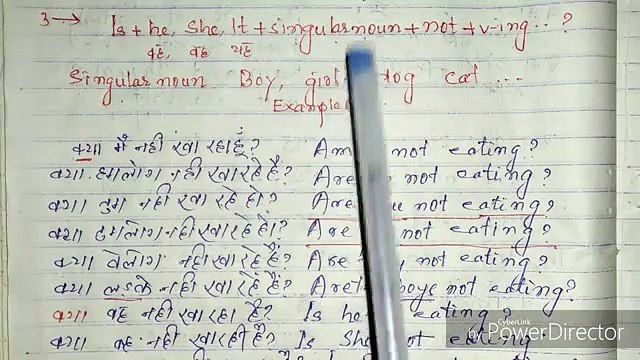 3 → Is + he, She, It + singular noun + not + v-ing . . ?
वह, वह यह
Singular noun Boy, girl dog cat ...
Example
क्या मैं नहीं खा रहा हूं? Am not eating?
क्या हमलोग नहीं खा रहे हैं? Are not eating?
क्या तुम नहीं खा रहे हो? Are not eating?
क्या तुमलोग नहीं खा रहे हो? Are not eating?
क्या वेलोग नहीं खा रहे हैं? Are not eating?
क्या लड़के नहीं खा रहे हैं? Are boys not eating?
क्या वह नहीं खा रहा है? Is he eating?
क्या वह नहीं खा रही है? Is She not eating
CyberLink
PowerDirector